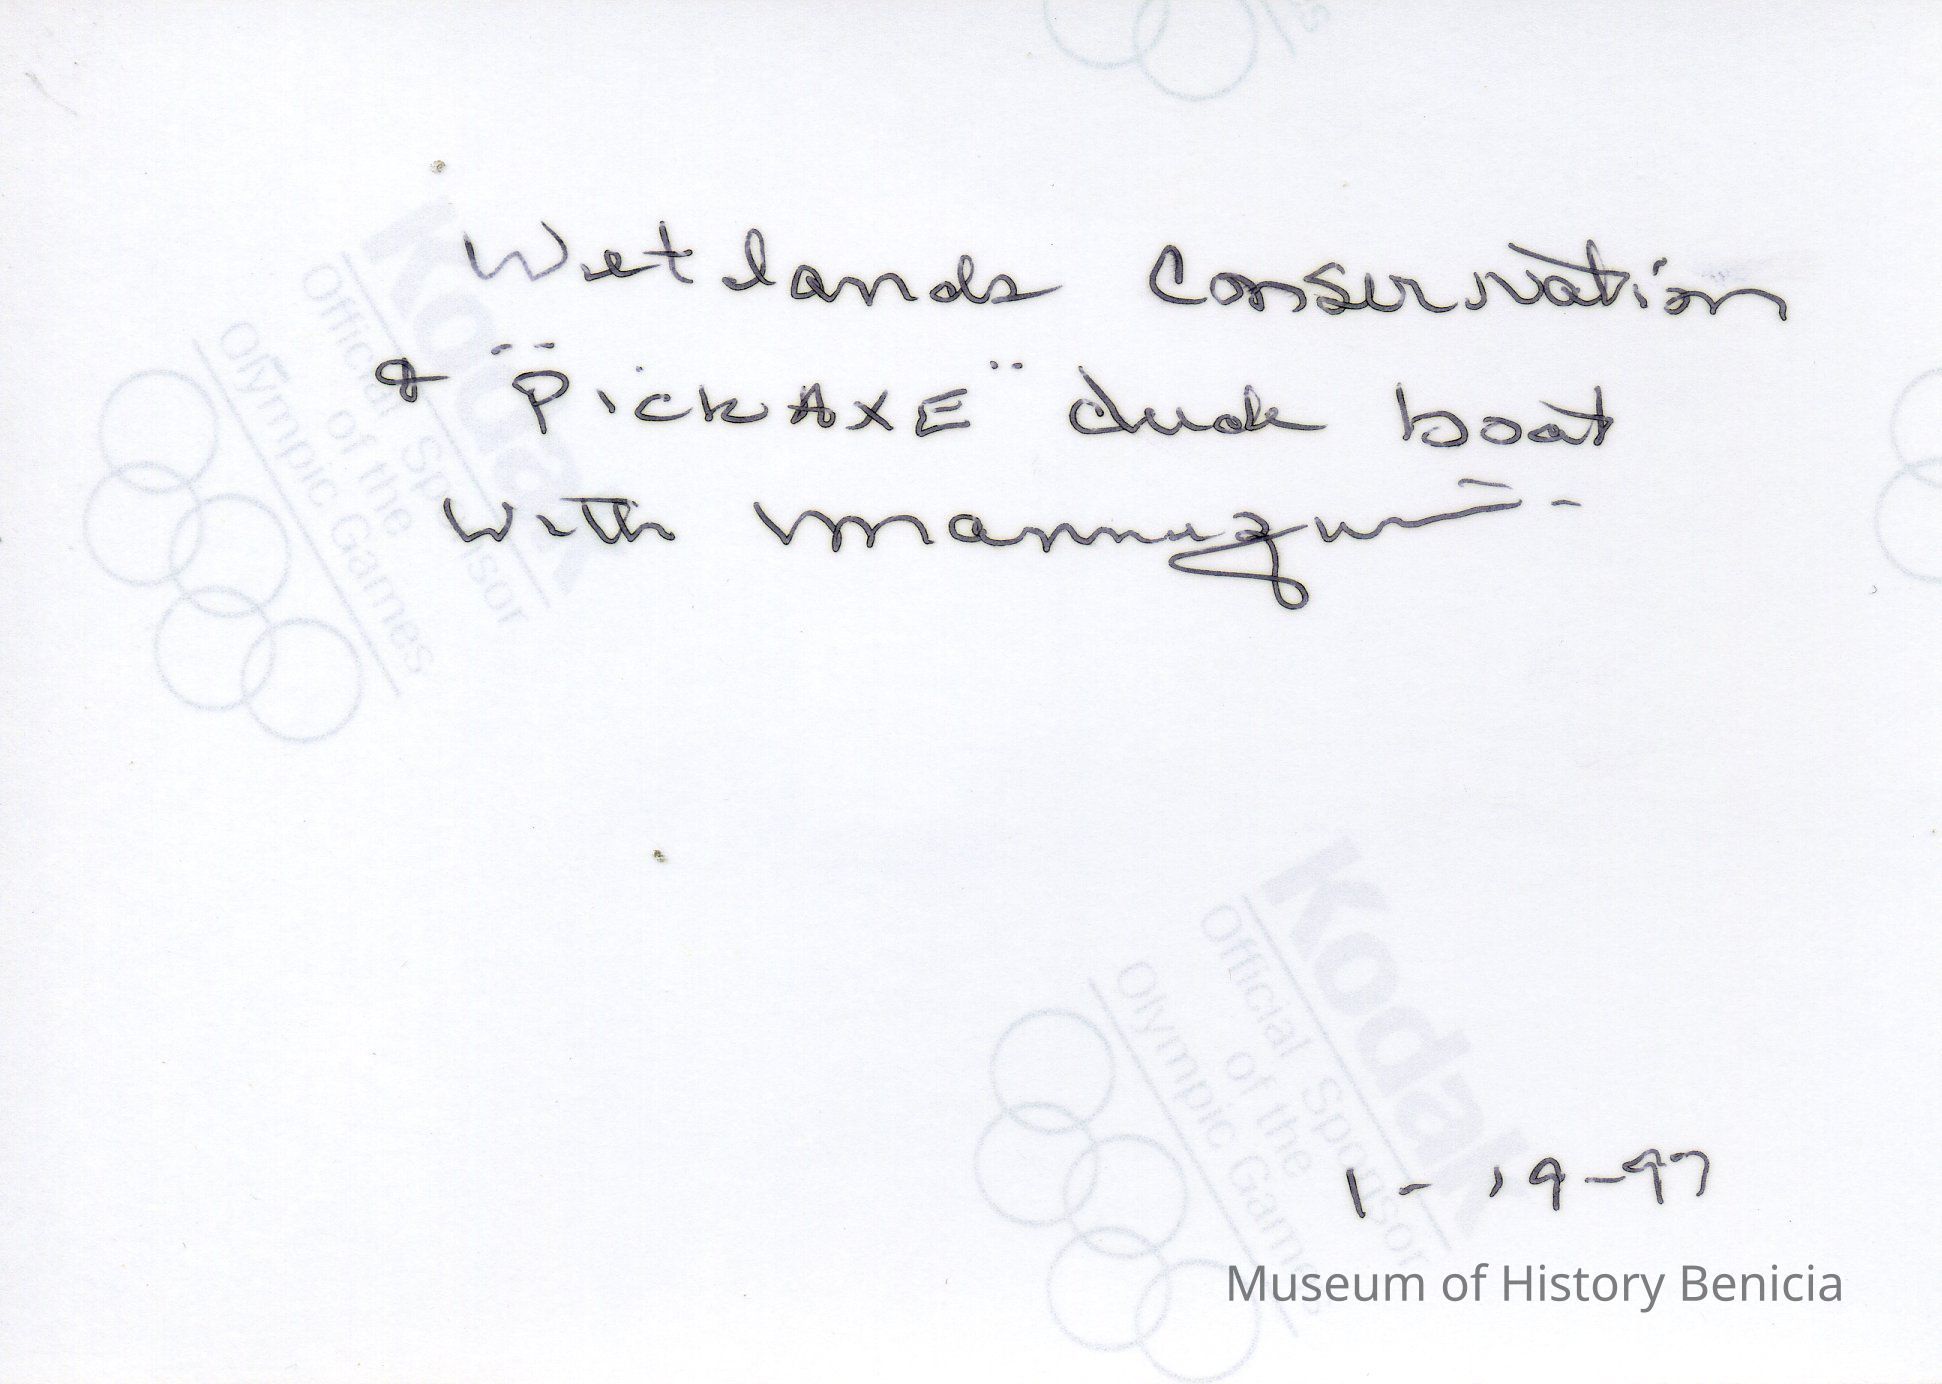 Wetlands Conservation
& "PickAXE" duck boat
with mannequin
1-19-97
Museum of History Benicia
Kodak
Official Sponsor
of the
Olympic Games
Kodak
Official Sponsor
of the
Olympic Games